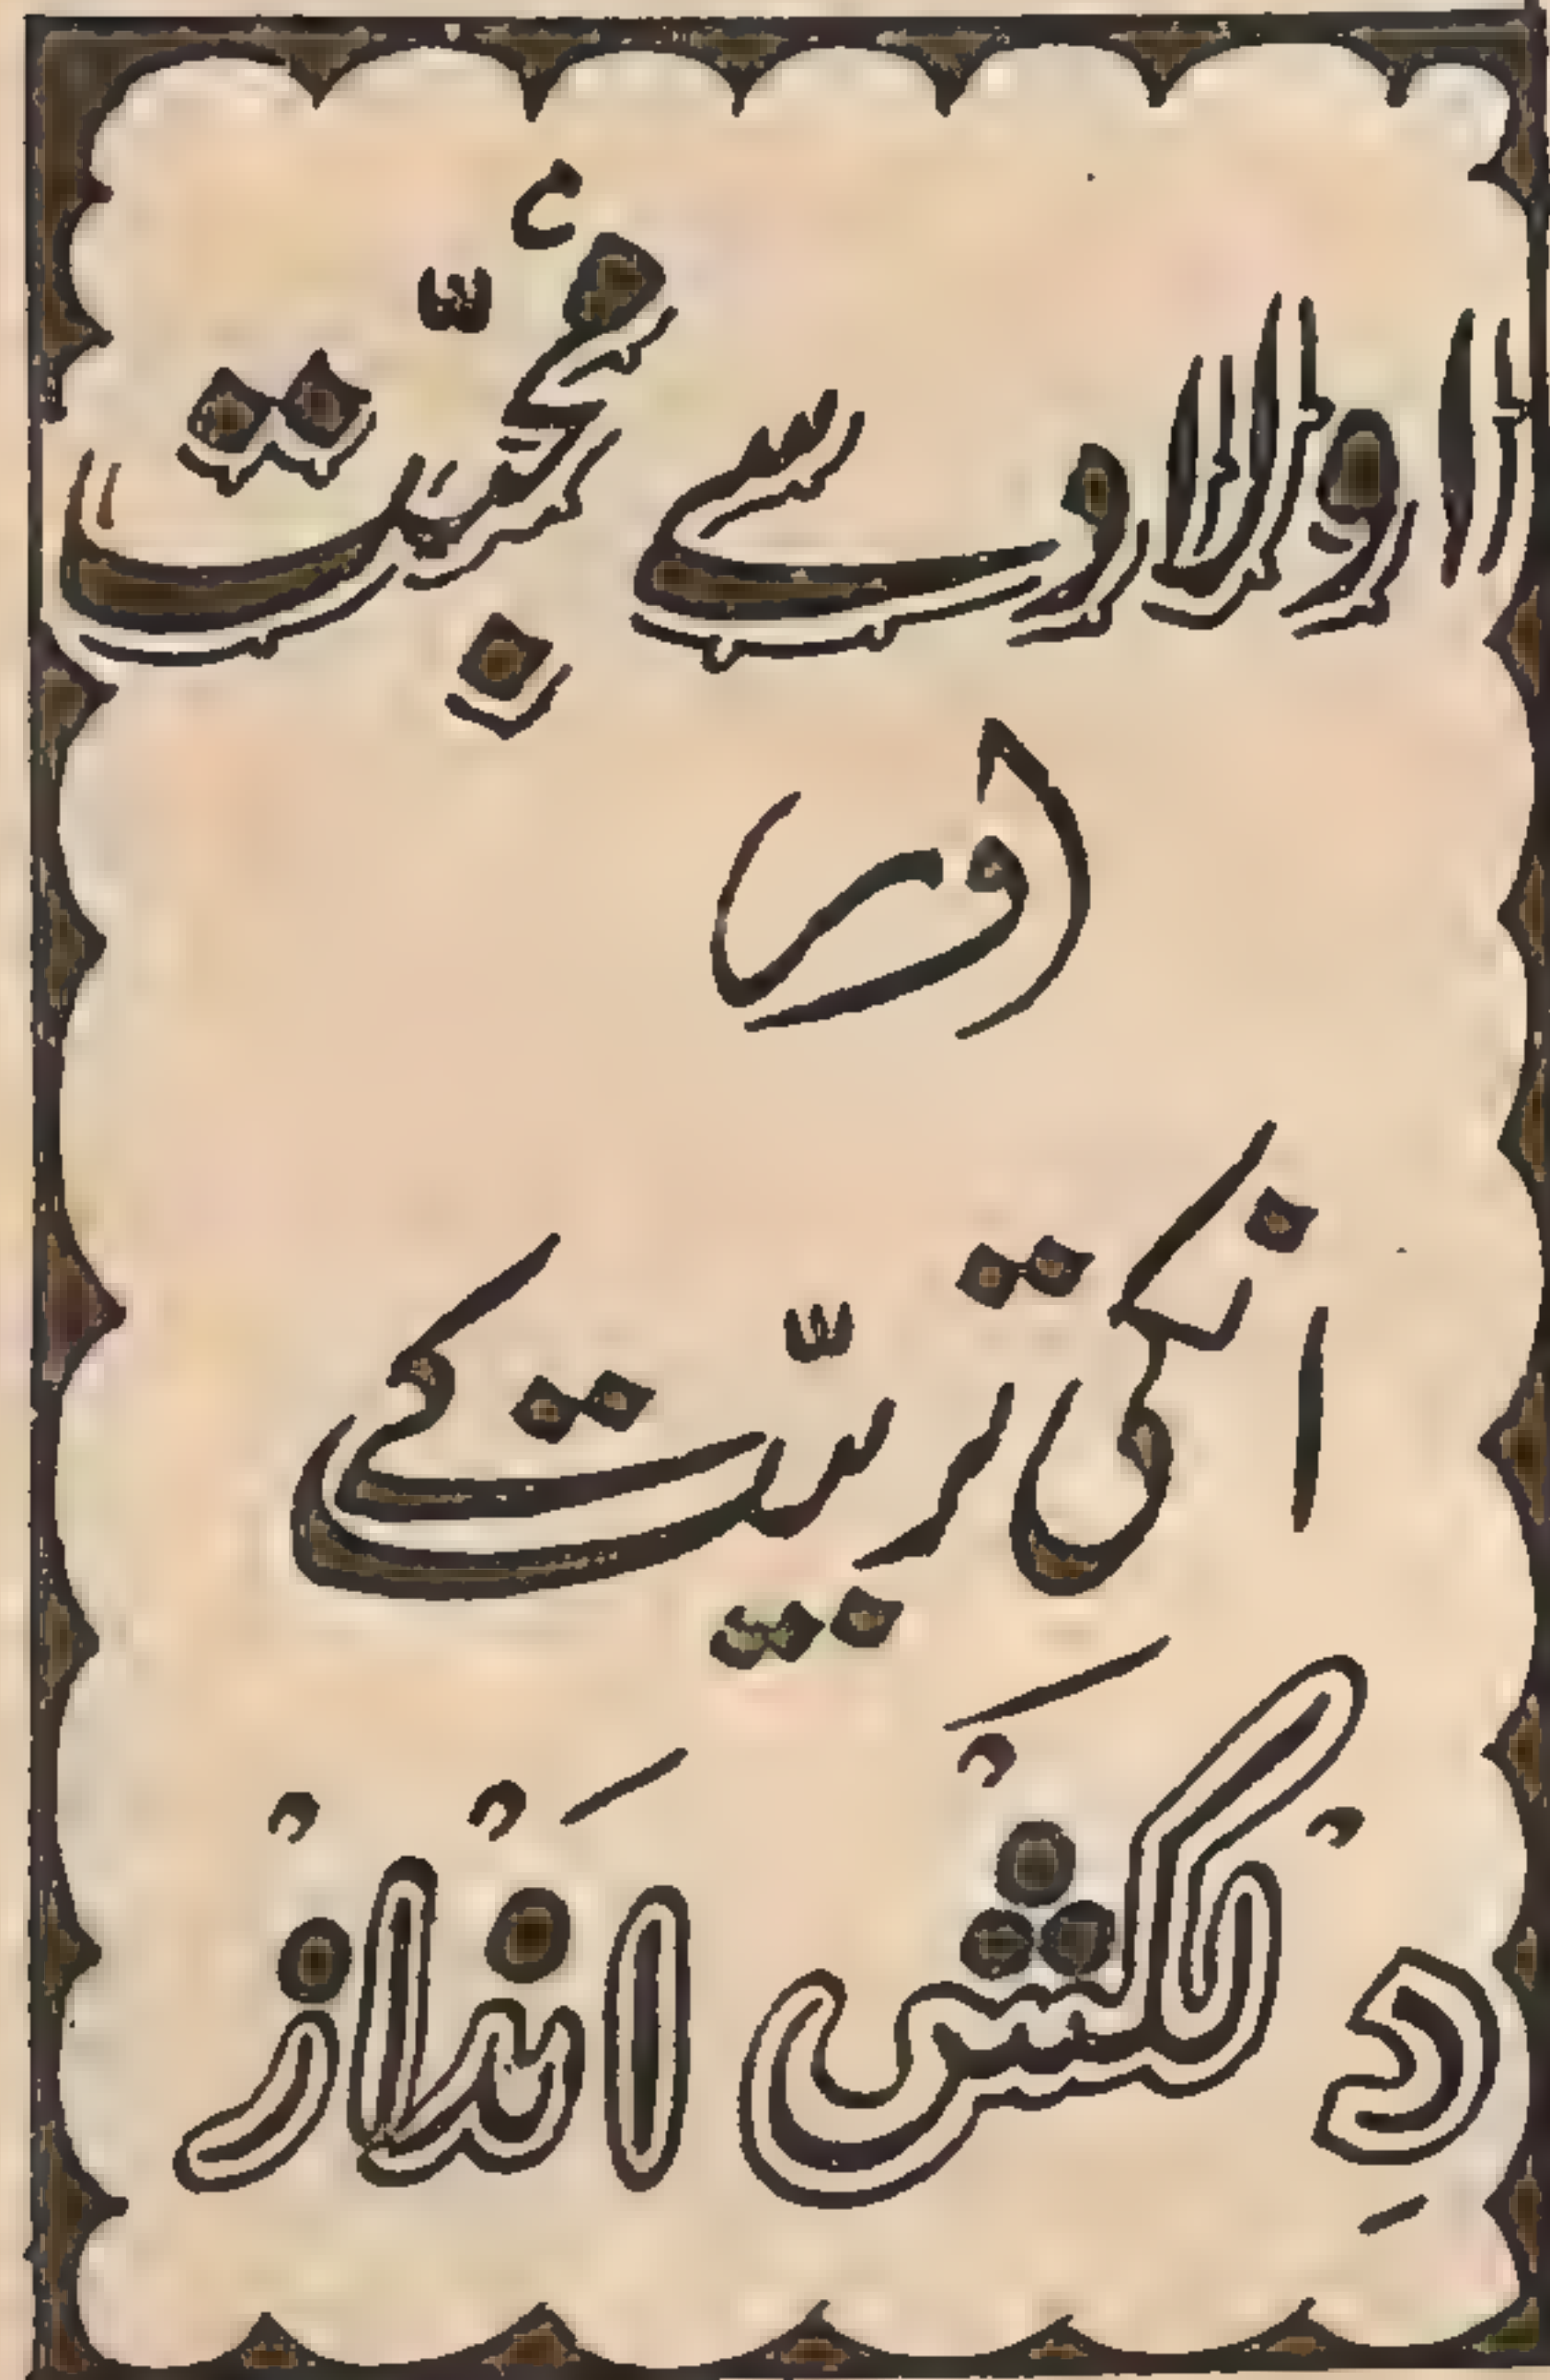 اولاد سے محبّت
اور
انکی تربیّت کے
دِلکَش اَنْداز